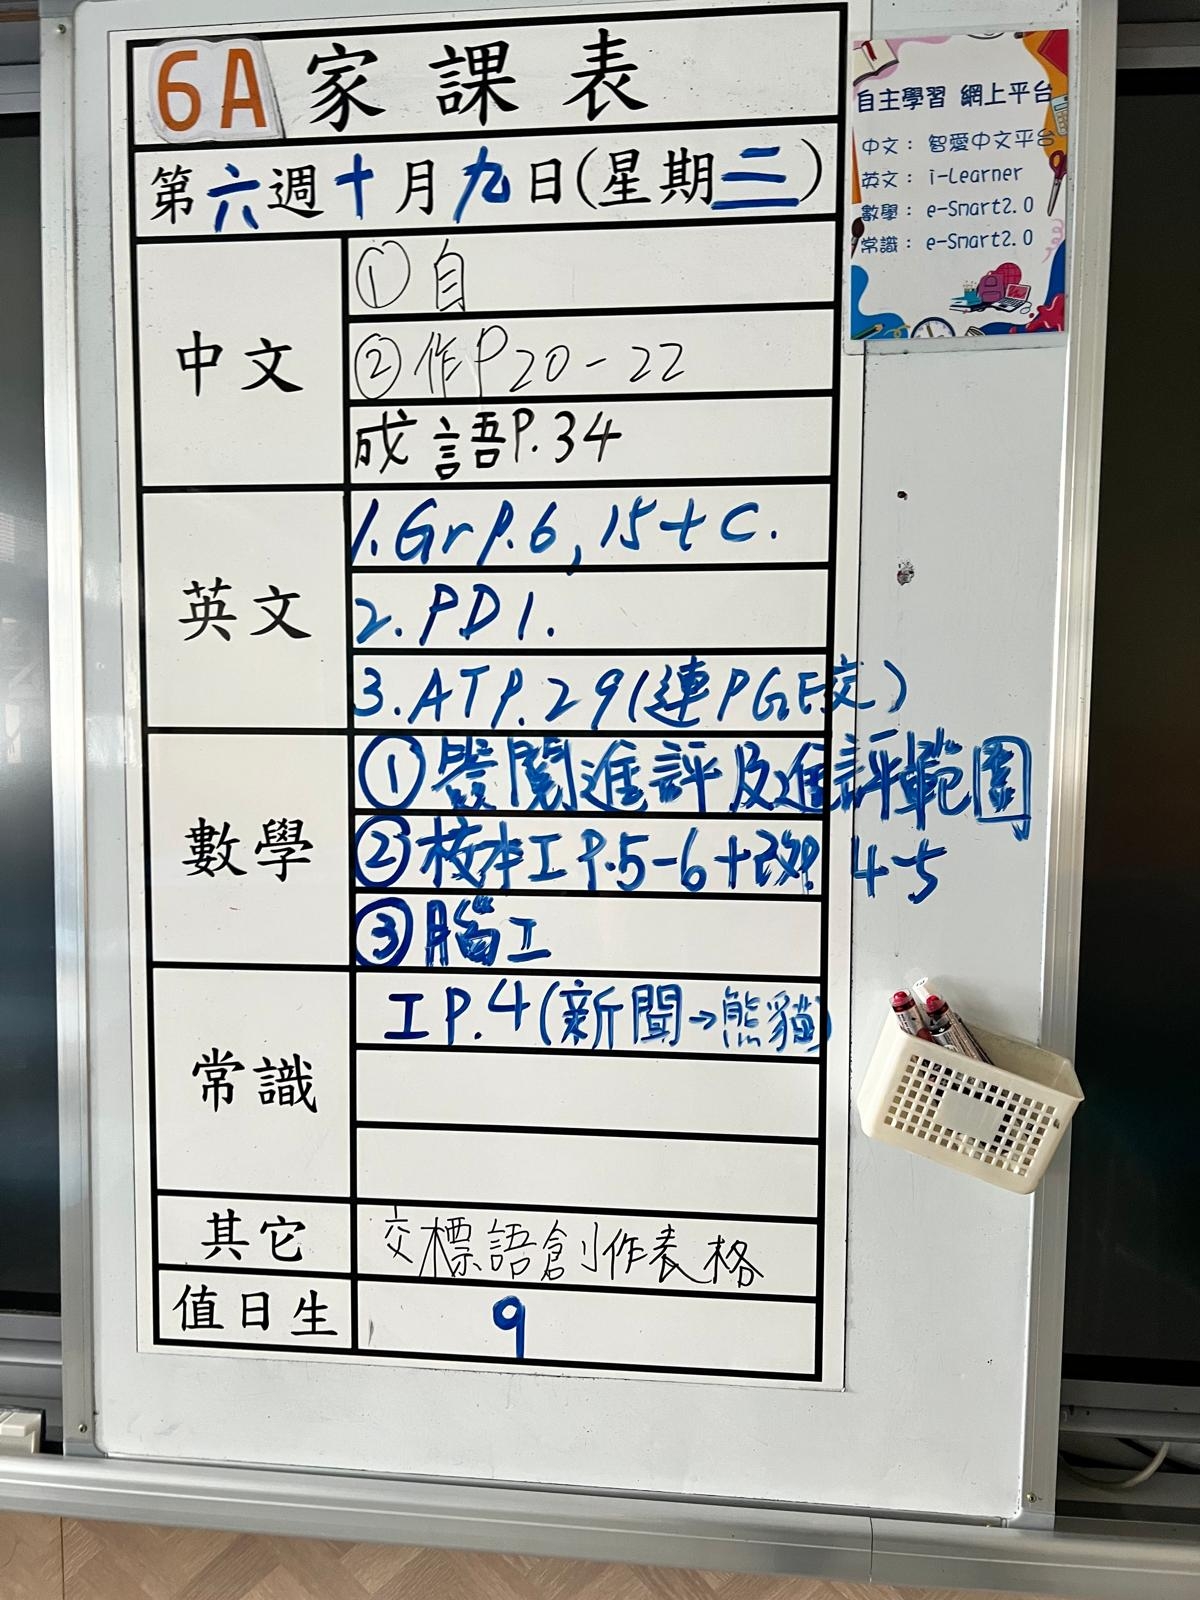 6A 家課表
第六週十月九日(星期三)
中文
① 自
② 作P20-22
成語P.34
英文
1. Gr P.6, 15 + C.
2. PD1.
3. ATP.29(連PGF交)
數學
① 簽閱進評及進評範圍
② 校本工P.5-6+改P.4-5
③ 腦工
常識
工P.4(新聞→熊貓)
其它
交標語創作表格
值日生
9
自主學習 網上平台
中文：智愛中文平台
英文：i-Learner
數學：e-Smart2.0
常識：e-Smart2.0